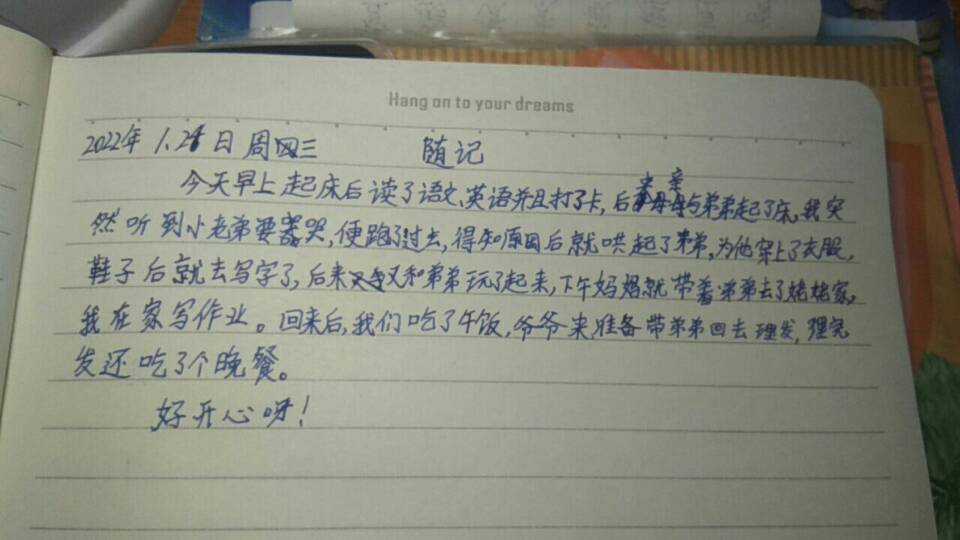 Hang on to your dreams
2022年 1.21日 周三 随记
今天早上起床后读了语文、英语并且打了卡,后来母亲与弟弟起了床,我突
然听到小老弟要哭,便跑了过去,得知原因后就哄起了弟弟,为他穿上了衣服,
鞋子后就去写字了,后来又和弟弟玩了起来,下午妈妈就带着弟弟去了姥姥家,
我在家写作业。回来后,我们吃了午饭,爷爷来准备带弟弟回去理发,理完
发还吃了个晚餐。
好开心呀!